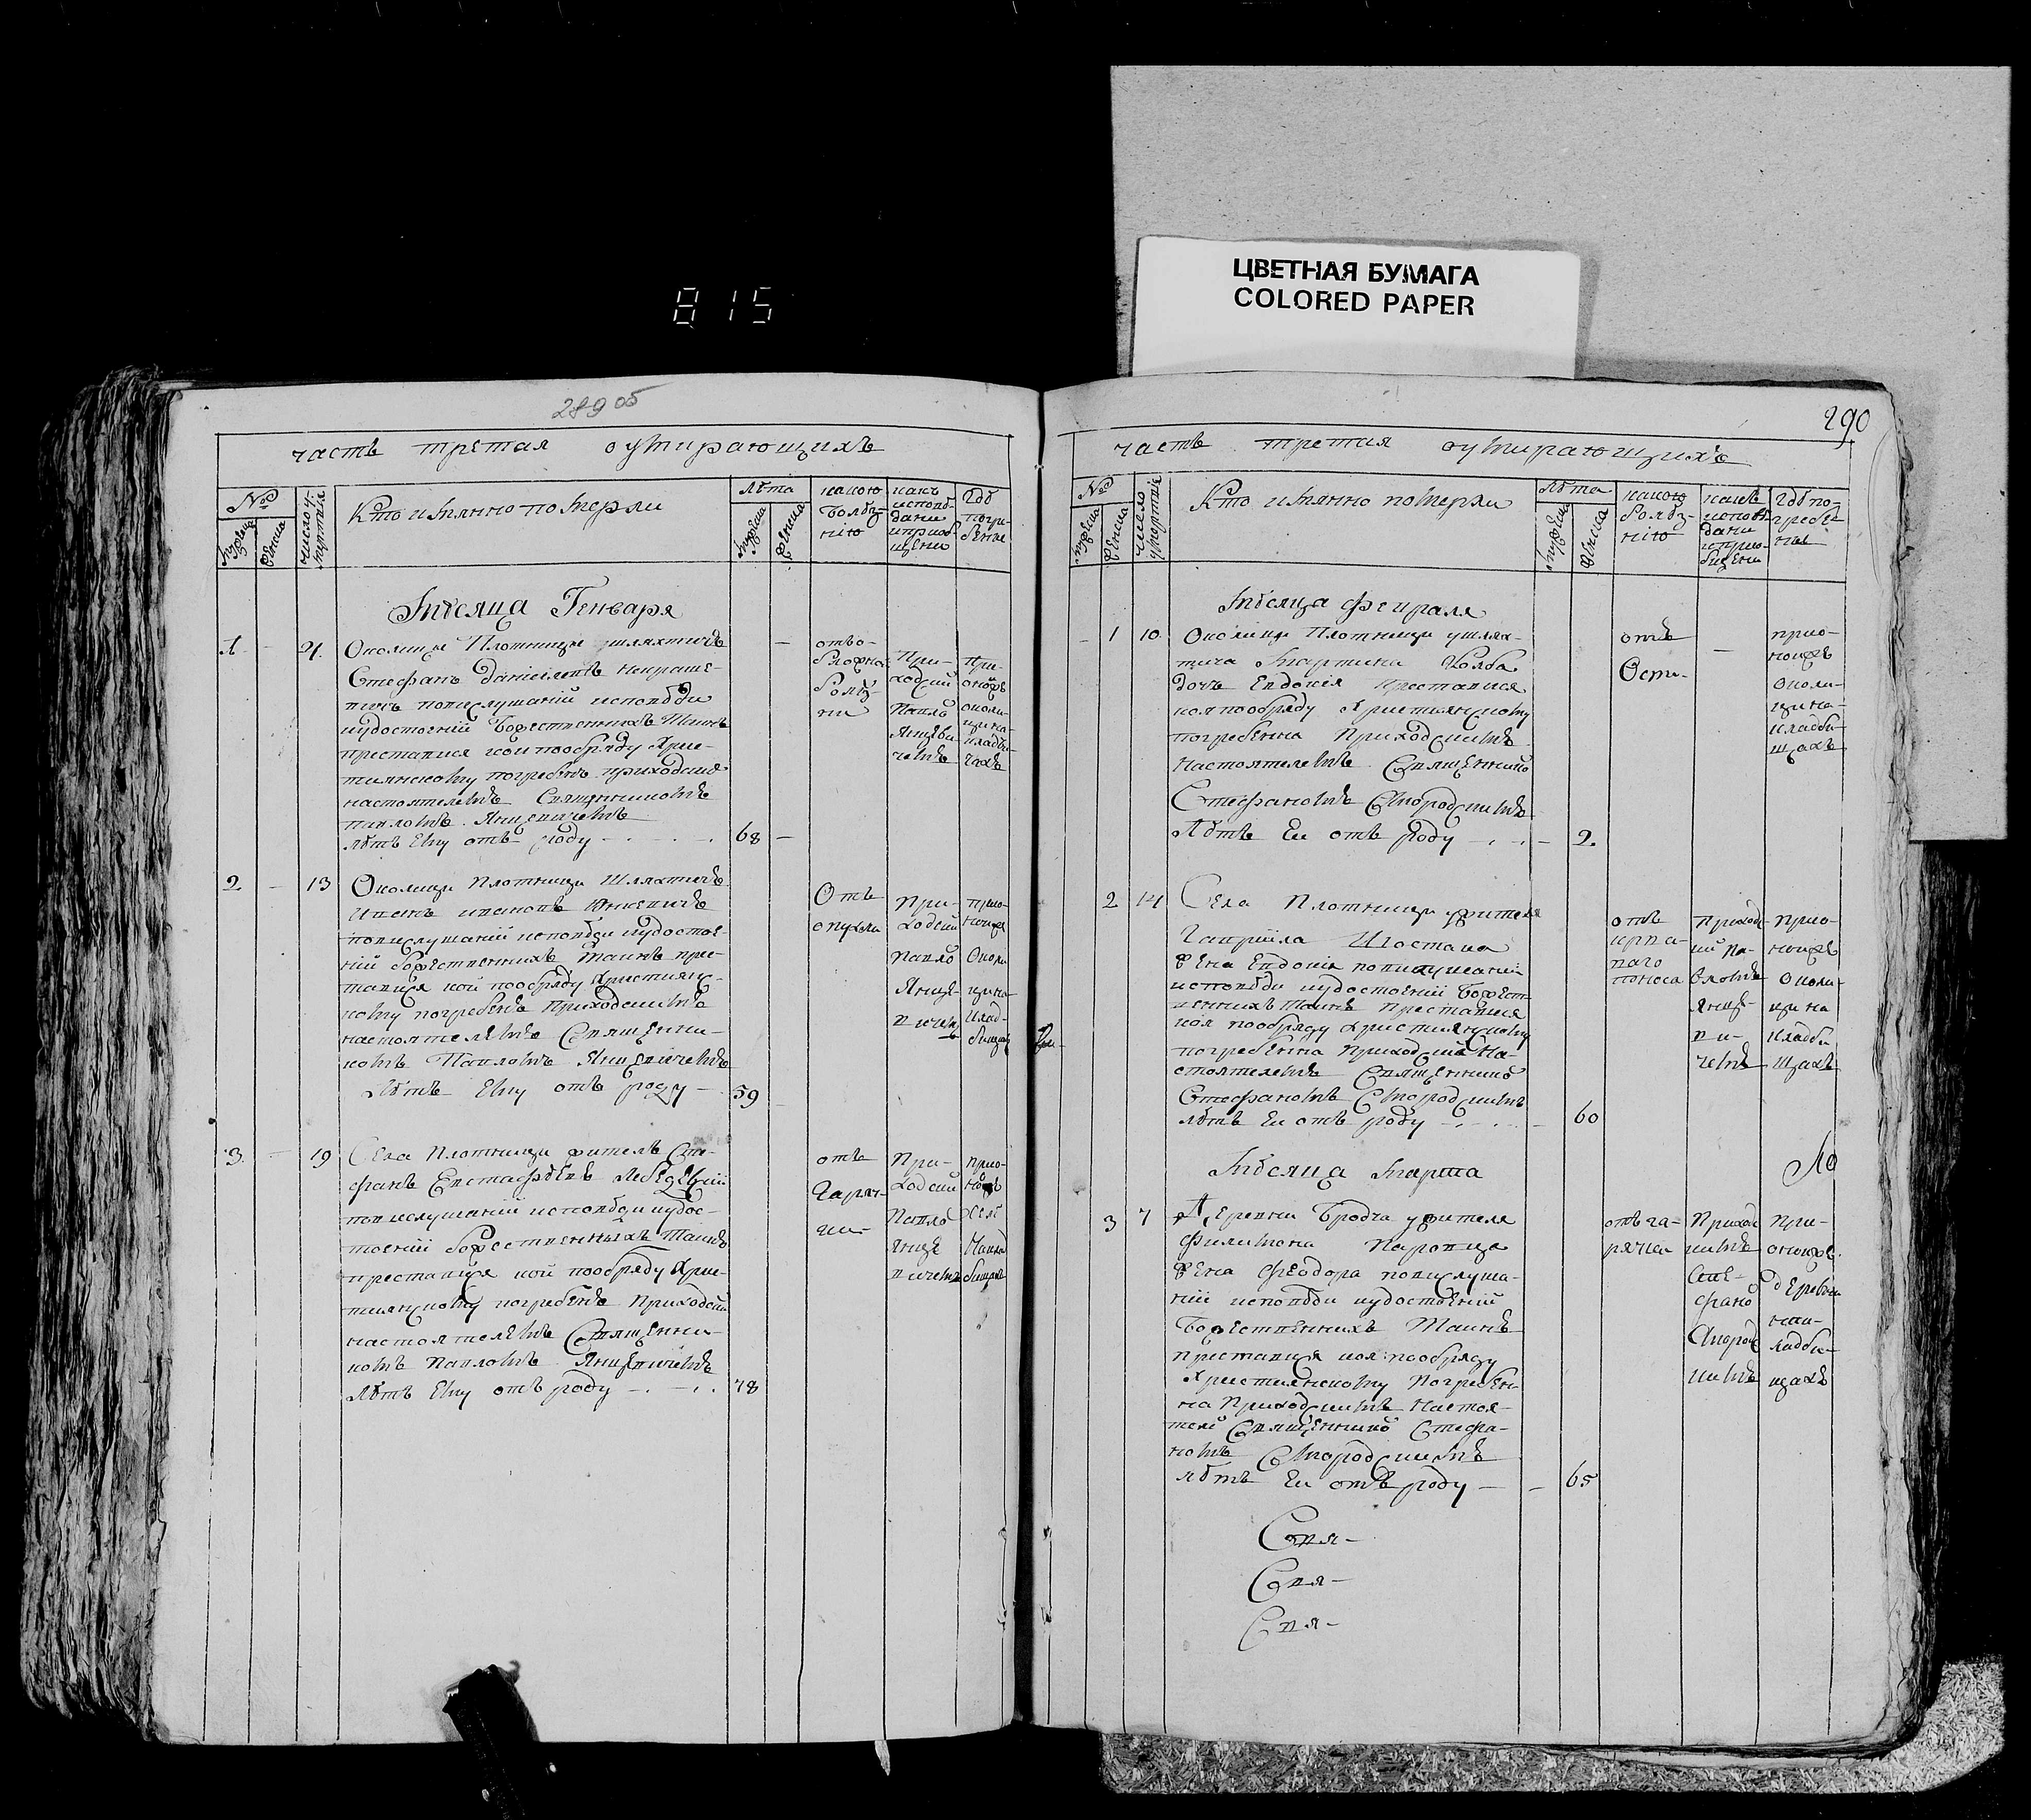 815
ЦВЕТНАЯ БУМАГА
COLORED PAPER
289 об
часть третая оумирающихъ
№
мужеска
женска
число умертвия
Кто имянно померли
лѣта
мужеска
женска
какою болѣзнію
какъ исповѣданы и приобщены
гдѣ погребены
Мѣсяца Генваря
1 - 4
Околицы Плотницы шляхтичъ
Стефанъ Даніеловъ
повислушаніи исповѣди
иудостоеніи Божественныхъ Таинъ
преставися кои пообряду Хрис-
тиянскому погребенъ приходскимъ
настоятелемъ Священникомъ
Павломъ Янцевичемъ
лѣтъ Ему отъ роду - 68 -
отъ
болѣз-
ни
При-
ходский
Павло
Янцеви-
чемъ
2 - 13
Околицы Плотницы Шляхтичъ
Иванъ Ивановъ
повислушаніи исповѣди иудостое-
ніи Божественныхъ Таинъ пре-
ставися кои пообряду Християнс-
кому погребенъ Приходскимъ
настоятелемъ Священни-
комъ Павломъ Янцевичемъ
Лѣтъ Ему отъ роду - 59
Отъ
опухли
При-
ходский
Павло
Янце-
вичем
прио-
ноижъ
Околи
цина
клад-
бищах
3 - 19
Села Плотницы житель Сте-
фанъ Евстафѣевъ Лебедский
повислушаніи исповѣди иудос-
тоеніи Божественныхъ Таинъ
преставися кои пообряду Хрис-
тиянскому погребенъ Приходским
настоятелемъ Священни-
комъ Павломъ Янцевичемъ
Лѣтъ Ему отъ роду - 78
отъ
Гаряч-
ки
При-
ходский
Павло
Янце
вичемъ
290
часть третия оумирающихъ
№
мужеска
женска
число умертвія
Кто имянно померли
Лѣта
мужеска
женска
какою болѣзнію
какъ исповѣданы и приобщены
гдѣ погребены
Мѣсяца февраля
- 1 10
Околицы Плотницы ушлях-
тича Мартина Колба
дочь Евдокія преставися
коя пообряду Християнскому
погребенна Приходскимъ
Настоятелемъ Священнико
Стефаномъ Смородскимъ
Лѣтъ Ей отъ Роду - 2
отъ
Оспи-
-
прио-
ноижъ
Околи-
цина-
кладби-
щахъ
2 14
Села Плотницы ужителя
Гавриіла Шостака
жена Евдокія повислушаніи
исповѣди иудостоеніи Божест-
венныхъ Таинъ Преставися
коя пообряду християнскому
погребенна Приходским На-
стоятелемъ Священнико
Стефаномъ Смородскимъ
лѣтъ Ей отъ роду - 60
отъ
крва-
ваго
поноса
Приход-
ский Па-
вломъ
Янце-
ви-
чемъ
прио-
ноижъ
Околи-
цина
кладби
щахъ
Мѣсяца Марта
3 7
Деревни Бродча ужителя
Филимона
жена Феодора повислуша-
ніи исповѣди иудостоеніи
Божественныхъ Таинъ
преставися коя пообряду
Християнскому Погребен-
на Приходскимъ Настоя-
тел Священнико Стефа-
номъ Смородскимъ
лѣтъ Ей отъ роду - 65
отъ га-
рячки
Приход
скимъ
Сте-
фано
Смород
скимъ
При-
оноижъ
деревни
нак-
ладби-
щахъ
Свя-
Свя-
Свя-